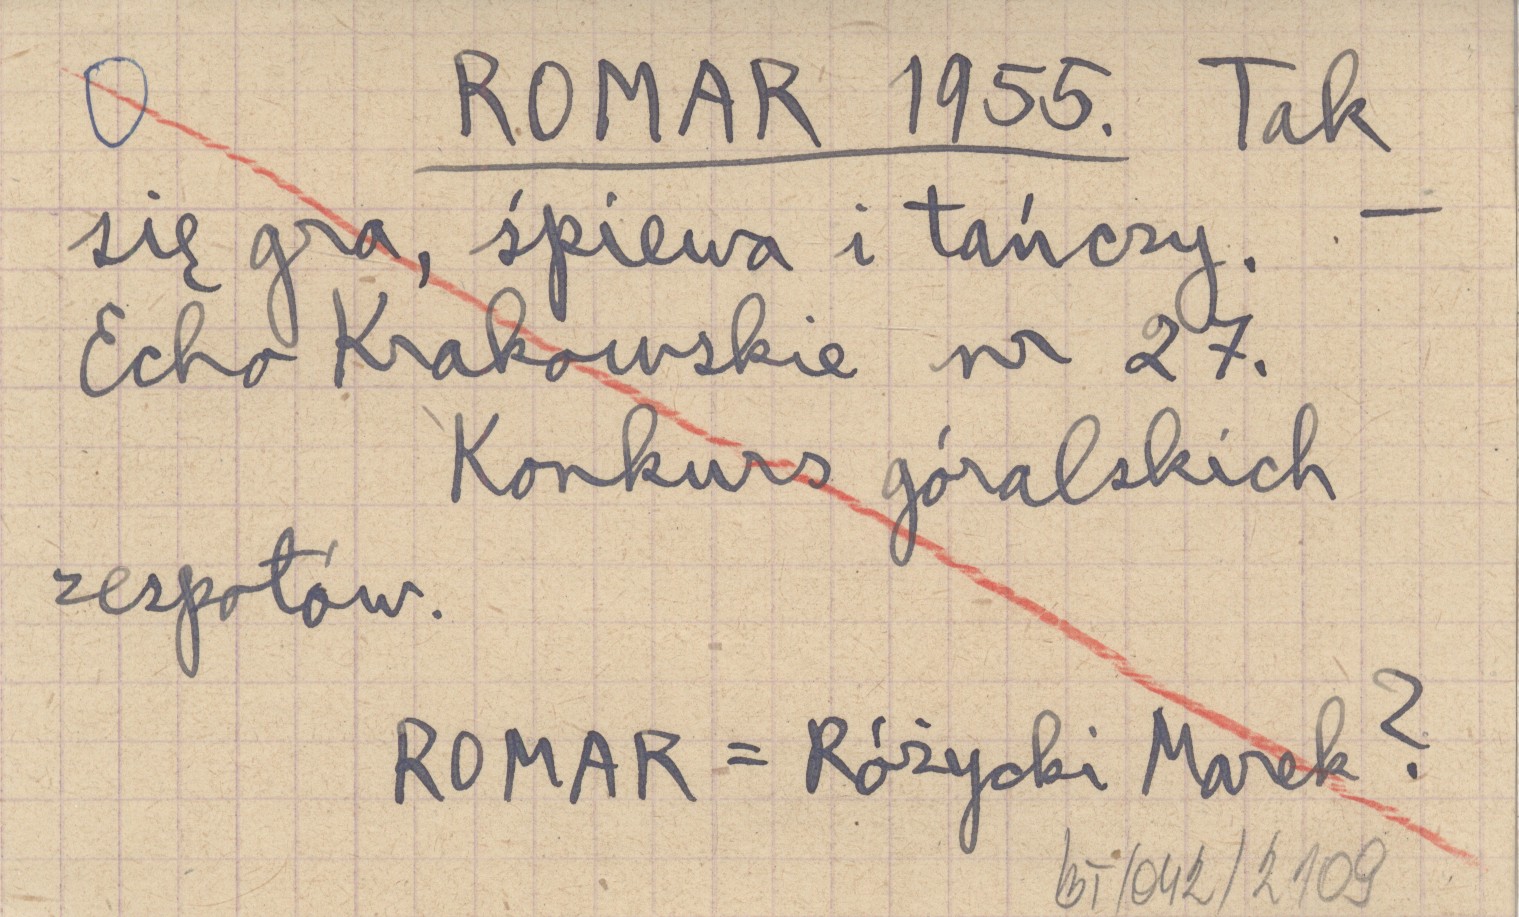 O ROMAR 1955. Tak
się gra, śpiewa i tańczy. —
Echo Krakowskie nr 27.
Konkurs góralskich
zespołów.
ROMAR = Różycki Marek?
BI/042/2109